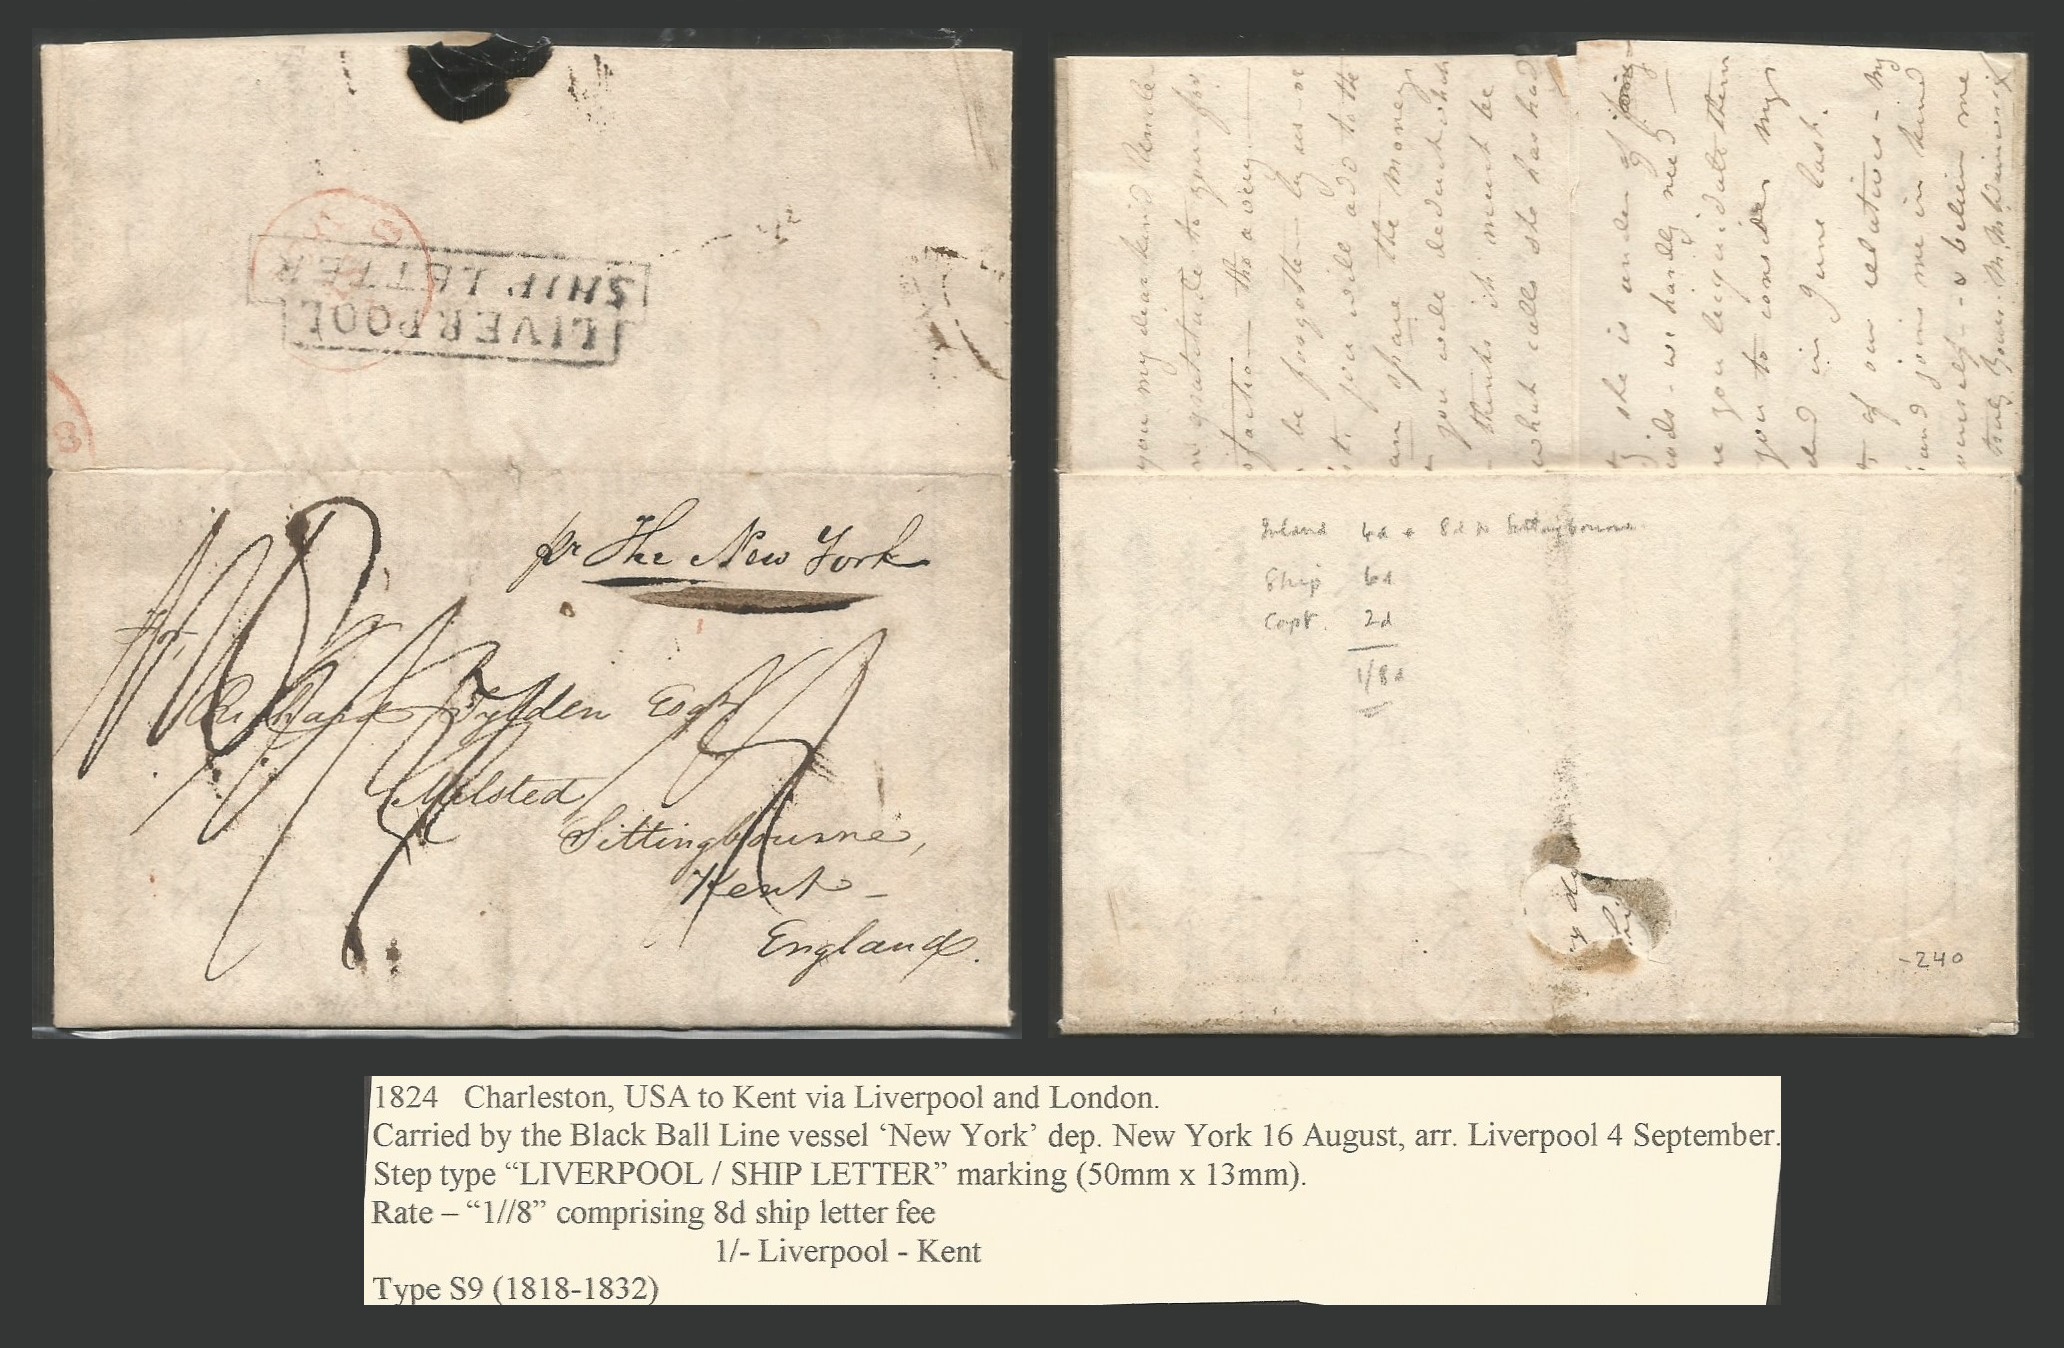 LIVERPOOL
SHIP LETTER
8
pr The New York
For
Richard Tylden Esqr
Milsted
Sittingbourne,
Kent -
England.
you my dear kind Uncle
gratitude to your for
be forgotten by us or
you will add to the
spare the money
you will deduct what
thinks it must be
what calls she has had
she is under of
we hardly need
you liquidate them
you to consider my
in June last.
of our relatives - my
and joins me in kind
yourself - & believe me
truly yours
Inland 4d + 8d to Sittingbourne
Ship 6d
Capt. 2d
1/8d
-240
1824 Charleston, USA to Kent via Liverpool and London.
Carried by the Black Ball Line vessel ‘New York’ dep. New York 16 August, arr. Liverpool 4 September.
Step type “LIVERPOOL / SHIP LETTER” marking (50mm x 13mm).
Rate – “1//8” comprising 8d ship letter fee
1/- Liverpool - Kent
Type S9 (1818-1832)